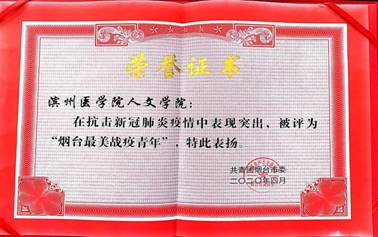 荣誉证书
滨州医学院人文学院：
在抗击新冠肺炎疫情中表现突出，被评为
“烟台最美战疫青年”，特此表扬。
共青团烟台市委
二〇二〇年四月